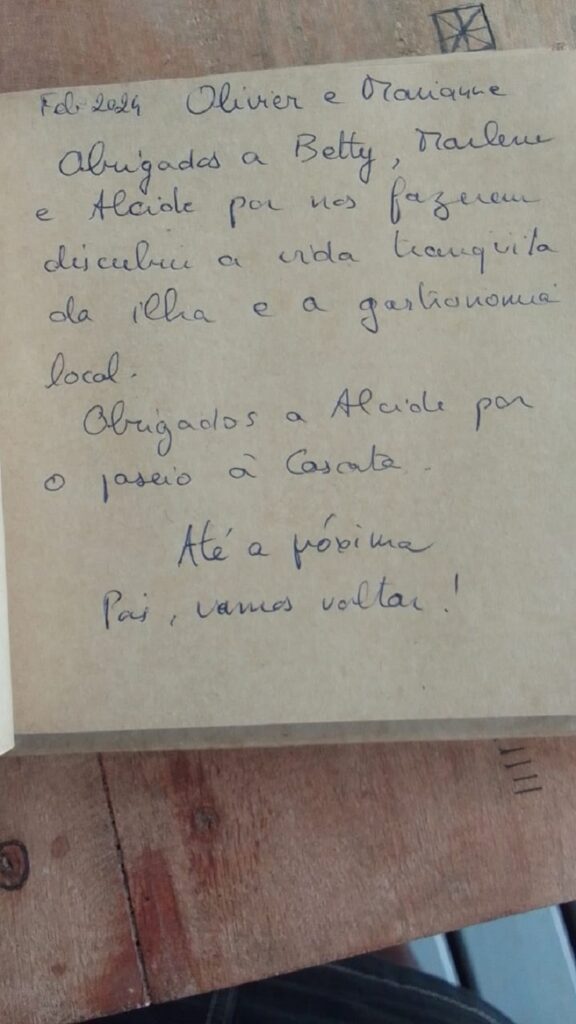 Feb 2024 Olivier e Marianne
Obrigados a Betty, Marlene
e Alcide por nos fazerem
descubrir a vida tranquila
da ilha e a gastronomia
local.
Obrigados a Alcide por
o paseio à Cascata.
Até a próxima
Pois, vamos voltar!